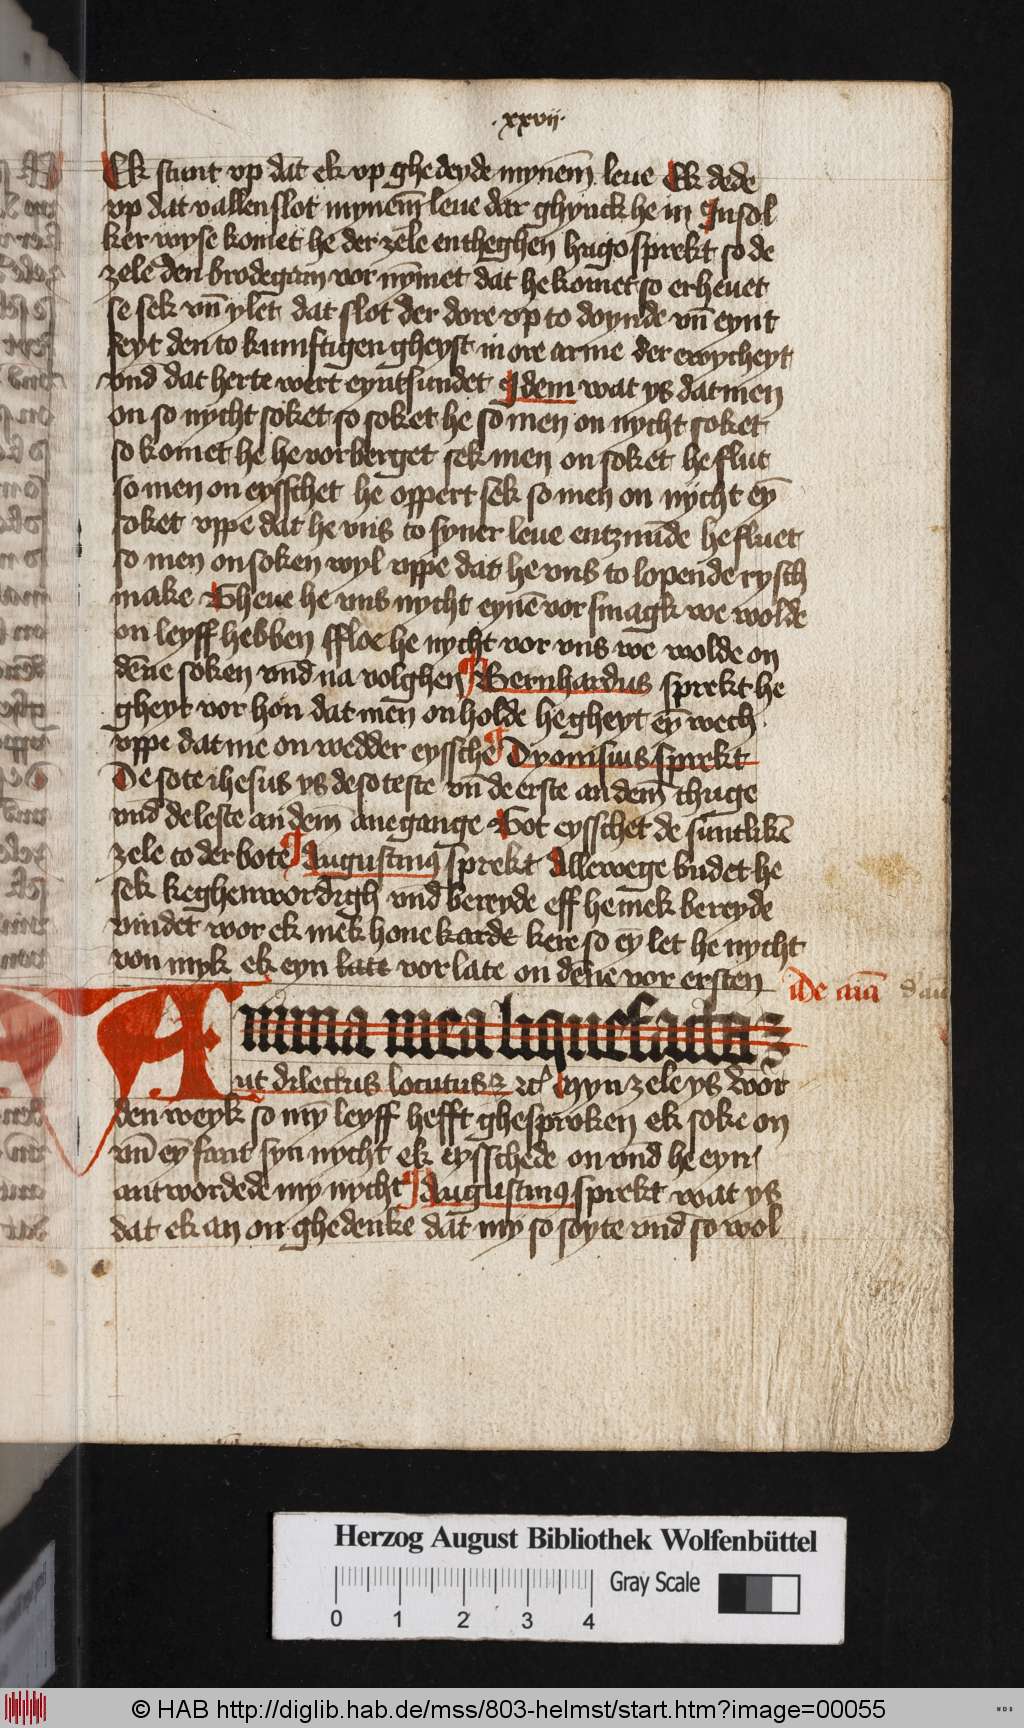 ·xxvij·
Ek stunt vp dat ek vp ghedeyde mynem̄ leue Ek dede
vp dat vallenslot mynem̄ leue dar ghynck he in In sol
ker wyse komet he der zele entheghen hugo sprekt so de
zele den brodegam vor nȳmet dat he komet so erheuet
se sek vn̄ ylet dat slot der dore vp to doynde vn̄ eynt
feyt den to kumftigen gheyst in ore arme der ewycheyt
vnd dat herte wert eyntfundet Idem wat ys dat men
on so nycht soket so soket he so men on nycht soket
so komet he he vorberget sek men on soket he flut
so men on eysschet he oppert sek so men on nycht eȳ
soket vppe dat he vns to syner leue entzmūde he fluet
so men on soken wyl vppe dat he vns to lopende rysch
make Gheue he vns nycht eynē vor smagk we wolde
on leyff hebben ffloe he nycht vor vns we wolde on
dēne soken vnd na volghen ¶ Bernhardus sprekt he
gheyt vor hōn dat men̄ on holde he gheyt eȳ wech
vppe dat me on wedder eyssche ¶ Dyonisius sprekt
De sote ihesus ys de soteste vn̄ de erste an dem̄ thuge
vnd de leste an dem̄ anegange Got eysschet de suntlikē
zele to der bote ¶ Augustinꝯ sprekt Allewege budet he
sek keghenwordigh vnd bereyde eff he mek bereyde
vindet wor ek mek hone karde kere so eȳ let he nycht
von myk ek eyn late vor late on dēne vor ersten
De aīa
Anima mea liquefacta ꝫ
ut dilectus locutus ꝫ ⁊cꝰ Myn zele ys wor
den weyk so mȳ leyff hefft ghesproken ek soke on
vn̄ eȳ fant syn nycht ek eysschede on vnd he eyn
antwordede my nycht ¶ Augustinꝯ sprekt wat ys
dat ek an on ghedenke dat my so soyte vnd so wol
Herzog August Bibliothek Wolfenbüttel
Gray Scale
0 1 2 3 4
© HAB http://diglib.hab.de/mss/803-helmst/start.htm?image=00055